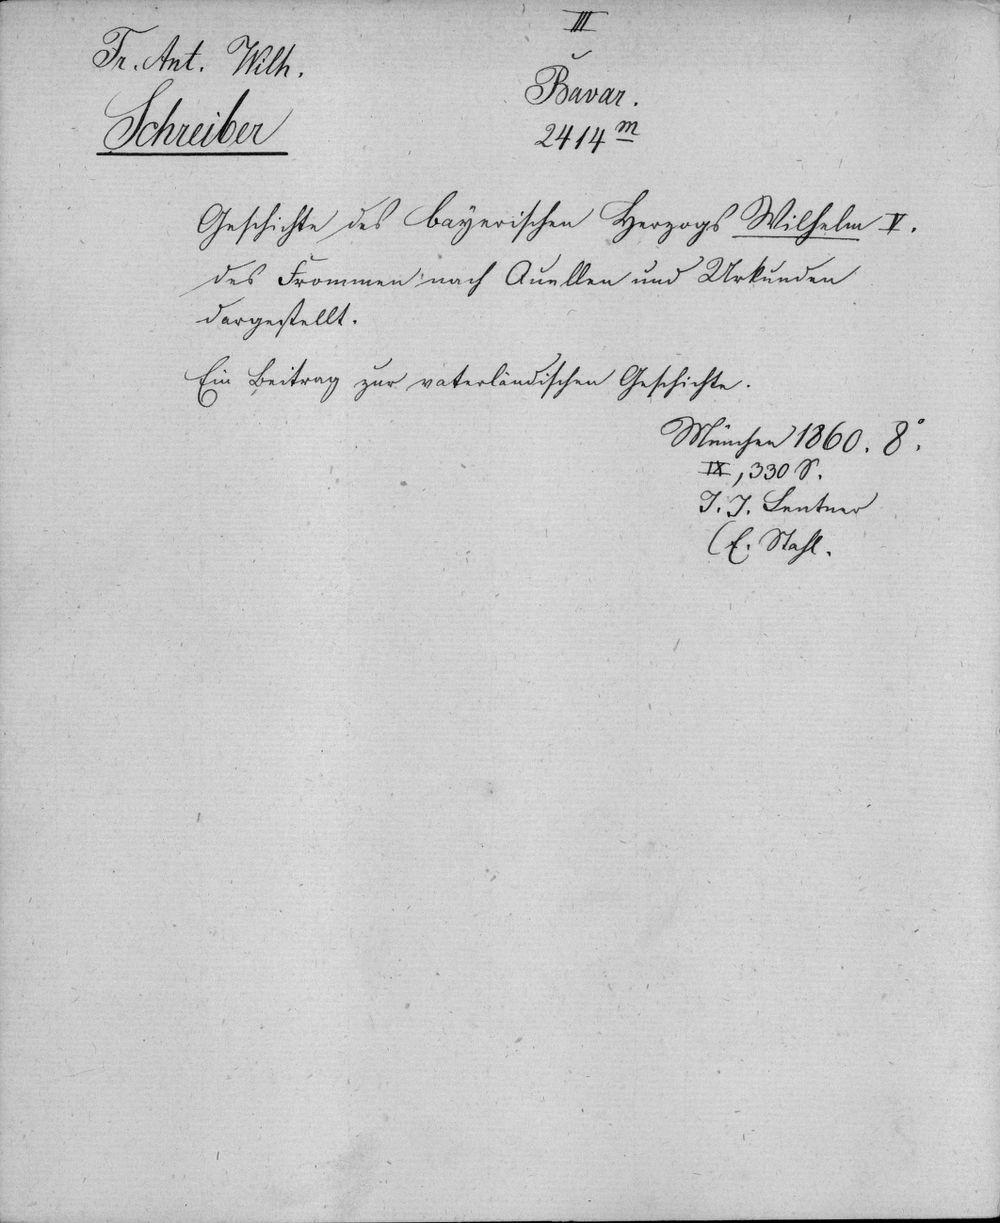 III
Fr. Ant. Wilh.
Schreiber
Bavar.
2414 m
Geschichte des bayerischen Herzogs Wilhelm V.
des Frommen nach Quellen und Urkunden
dargestellt.
Ein Beitrag zur vaterländischen Geschichte.
München 1860. 8°.
IX, 330 S.
J. J. Lentner
(E. Stahl.